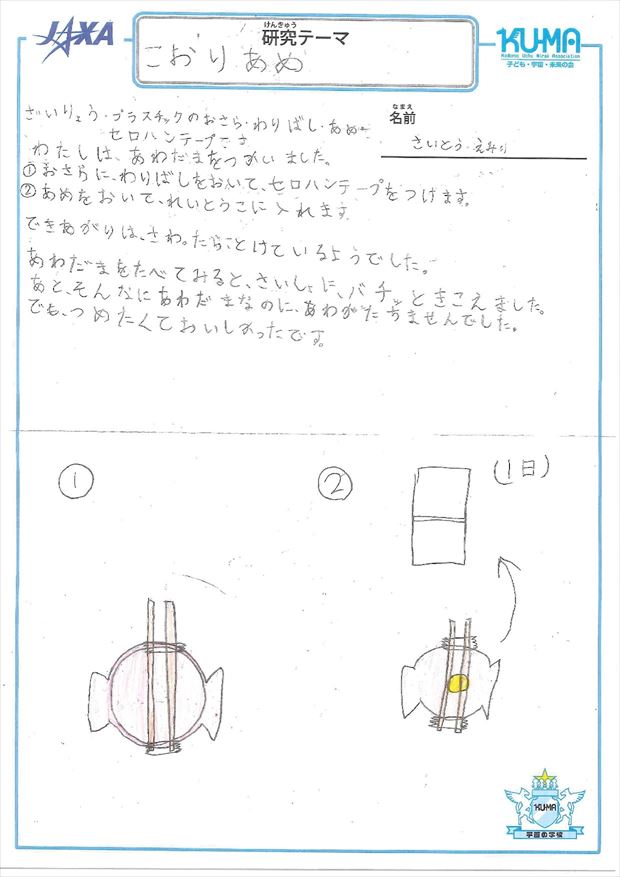 JAXA
けんきゅう
研究テーマ
こおりあめ
KU-MA
Kodomo Uchu Mirai Association
子ども・宇宙・未来の会
ざいりょう・プラスチックのおさら・わりばし・あめ
セロハンテープです
なまえ
名前
さいとう・えみり
わたしは、あわだまをつかいました。
①おさらに、わりばしをおいて、セロハンテープをつけます。
②あめをおいて、れいとうこに入れます
できあがりは、さわったらことけているようでした。
あわだまをたべてみると、さいしょに、バチッときこえました。
あと、そんなにあわだまなのに、あわがたちませんでした。
でも、つめたくておいしかったです。
①
②
(1日)
KU-MA
宇宙の学校